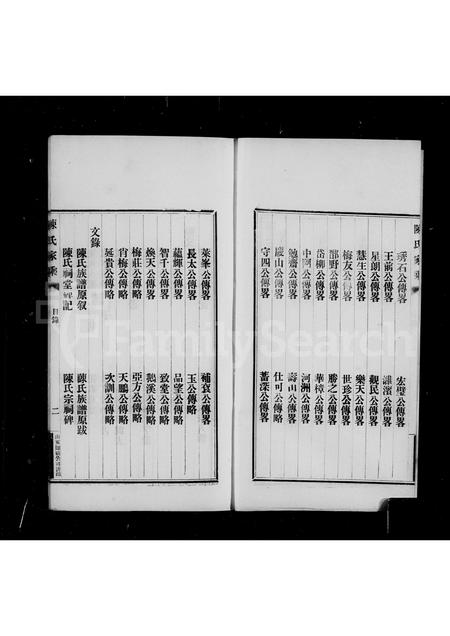 陳氏家乘
琇石公傳畧 宏璧公傳畧
玉前公傳畧 濰濱公傳畧
星朗公傳畧 觀民公傳畧
慧生公傳畧 樂天公傳畧
梅友公傳畧 世珍公傳畧
鄙野公傳畧 勝之公傳畧
岱柳公傳畧 華樟公傳畧
中岡公傳畧 河洲公傳畧
勉齋公傳畧 壽山公傳畧
慶山公傳畧 仕可公傳略
守四公傳畧 蓄深公傳畧
萊峯公傳畧 補袞公傳畧
長太公傳畧 玉公傳略
蘊輝公傳畧 品望公傳畧
智千公傳畧 致堂公傳略
煥天公傳畧 鵝溪公傳略
梅莊公傳略 亞力公傳略
肖梅公傳略 天鵬公傳略
延貴公傳略 次訓公傳略
文錄
陳氏族譜原叙 陳氏族譜原跋
陳氏祠堂碑記 陳氏宗祠碑
陳氏家乘 目錄 二
FamilySearch